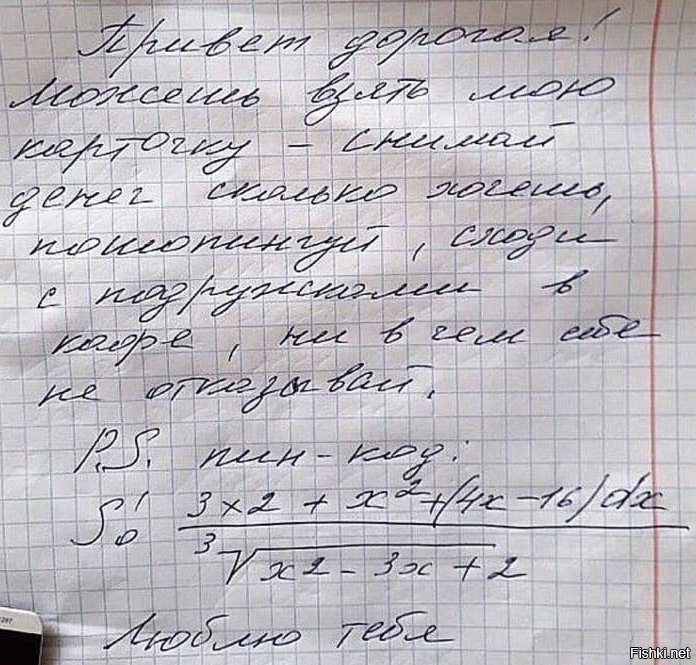 Привет дорогая!
Можешь взять мою
карточку - снимай
денег сколько хочешь,
пошопингуй, сходи
с подружками в
кафе, ни в чем себе
не отказывай.
P.S. пин-код:
∫₀¹ 3×2 + x² + (4x - 16)dx
³√x2 - 3x + 2
Люблю тебя
Fishki.net